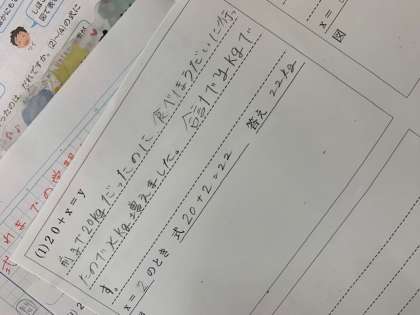 (1) 20 + x = y
前まで20kgだったのに食べほうだいに行っ
たのでxkg増えました。合計でykgで
す。
x = 2 のとき 式 20+2=22 答え 22kg
x =
図
ったのは、だれですか。(2〜(4)の式と